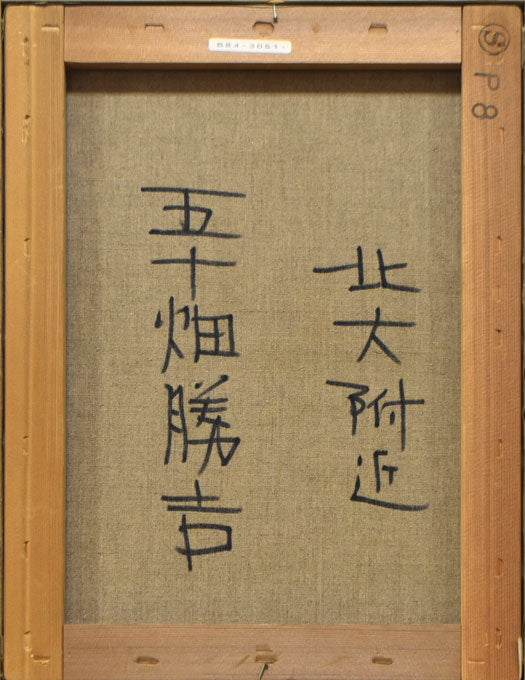 B84-3051-
Ⓢ P8
北大附近
五十畑勝吉